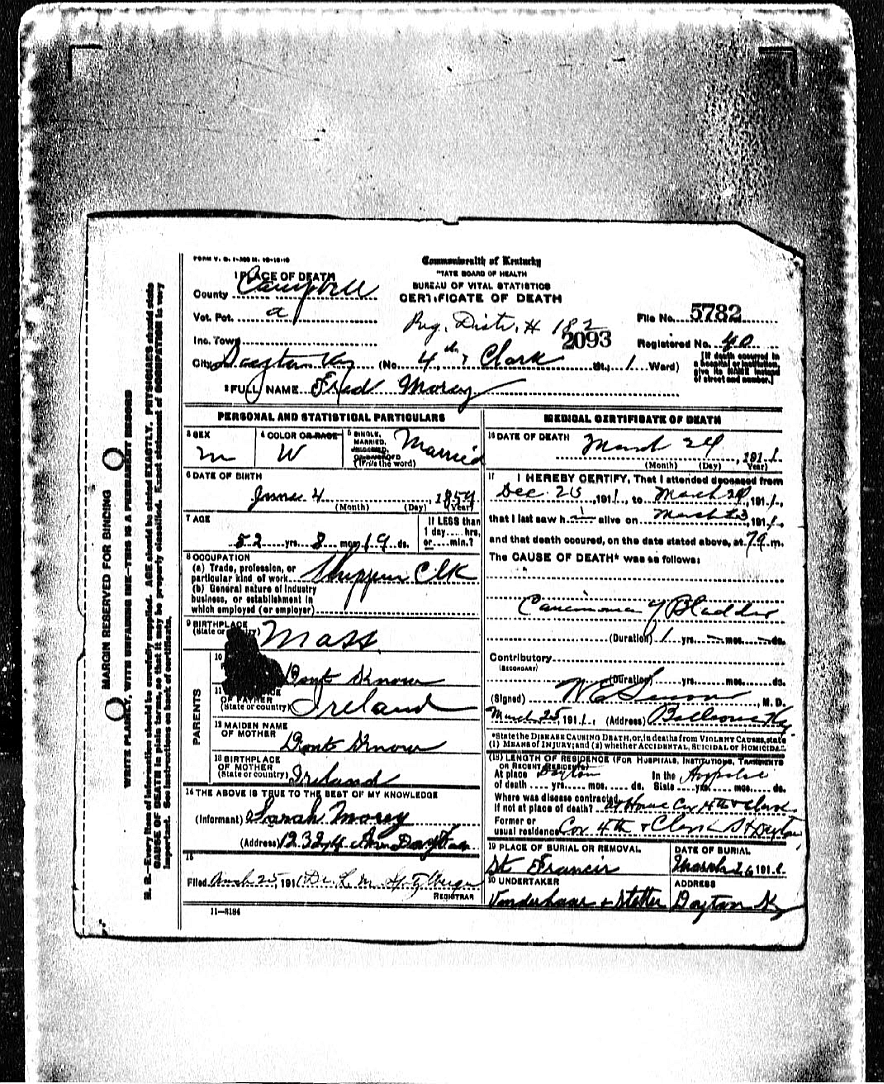 FORM V. S. 1-
Commonwealth of Kentucky
TATE BOARD OF HEALTH
BUREAU OF VITAL STATISTICS
CERTIFICATE OF DEATH
1 PLACE OF DEATH
County Campbell
Vot. Pct. a
Reg. Distr. # 182
File No. 5782
Inc. Town
2093
Registered No. 40
[If death occurred in a hospital or institution, give its NAME instead of street and number.]
City Dayton Ky (No. 4th & Clark St., 1 Ward)
2 FULL NAME Fred Morey
PERSONAL AND STATISTICAL PARTICULARS
3 SEX
m
4 COLOR OR RACE
W
5 SINGLE,
MARRIED,
WIDOWED,
OR DIVORCED
(Write the word)
Married
6 DATE OF BIRTH
4
(Month) (Day) (Year)
7 AGE
52 yrs. 8 mos. 19 ds.
If LESS than
1 day.... hrs.
or.... min.?
8 OCCUPATION
(a) Trade, profession, or
particular kind of work Clk
(b) General nature of industry
business, or establishment in
which employed (or employer)
9 BIRTHPLACE
(State or country)
Mass
PARENTS
10
Dont Know
11
OF FATHER
(State or country) Ireland
12 MAIDEN NAME
OF MOTHER
Dont Know
13 BIRTHPLACE
OF MOTHER
(State or country) Ireland
14 THE ABOVE IS TRUE TO THE BEST OF MY KNOWLEDGE
(Informant) Sarah Morey
(Address)
15
Filed 25, 191
REGISTRAR
11—5184
MEDICAL CERTIFICATE OF DEATH
16 DATE OF DEATH
March 24, 1911
(Month) (Day) (Year)
17 I HEREBY CERTIFY, That I attended deceased from
Dec 25, 191, to March 24, 1911,
that I last saw h alive on March 23, 1911,
and that death occured, on the date stated above, at 7 m.
The CAUSE OF DEATH* was as follows:
Carcinoma of Bladder
(Duration) 1 yrs. mos. ds.
Contributory
(SECONDARY)
(Duration) yrs. mos. ds.
(Signed) M.D.
March 25 1911. (Address) Bellevue Ky.
*State the DISEASE CAUSING DEATH, or, in deaths from VIOLENT CAUSES, state
(1) MEANS OF INJURY; and (2) whether ACCIDENTAL, SUICIDAL or HOMICIDAL.
(18) LENGTH OF RESIDENCE (FOR HOSPITALS, INSTITUTIONS, TRANSIENTS
OR RECENT RESIDENTS)
At place Dayton In the
of death yrs. mos. ds. State yrs. mos. ds.
Where was disease contracted,
if not at place of death? At House Cor 4th & Clark
Former or
usual residence Cor 4th & Clark St Dayton
19 PLACE OF BURIAL OR REMOVAL
St Francis
DATE OF BURIAL
March 26 1911
20 UNDERTAKER
Vonderhaar & Stetter
ADDRESS
Dayton Ky
MARGIN RESERVED FOR BINDING
WRITE PLAINLY, WITH UNFADING INK—THIS IS A PERMANENT RECORD
N. B.—Every item of information should be carefully supplied. AGE should be stated EXACTLY. PHYSICIANS should state
CAUSE OF DEATH in plain terms, so that it may be properly classified. Exact statement of OCCUPATION is very
important. See instructions on back of certificate.